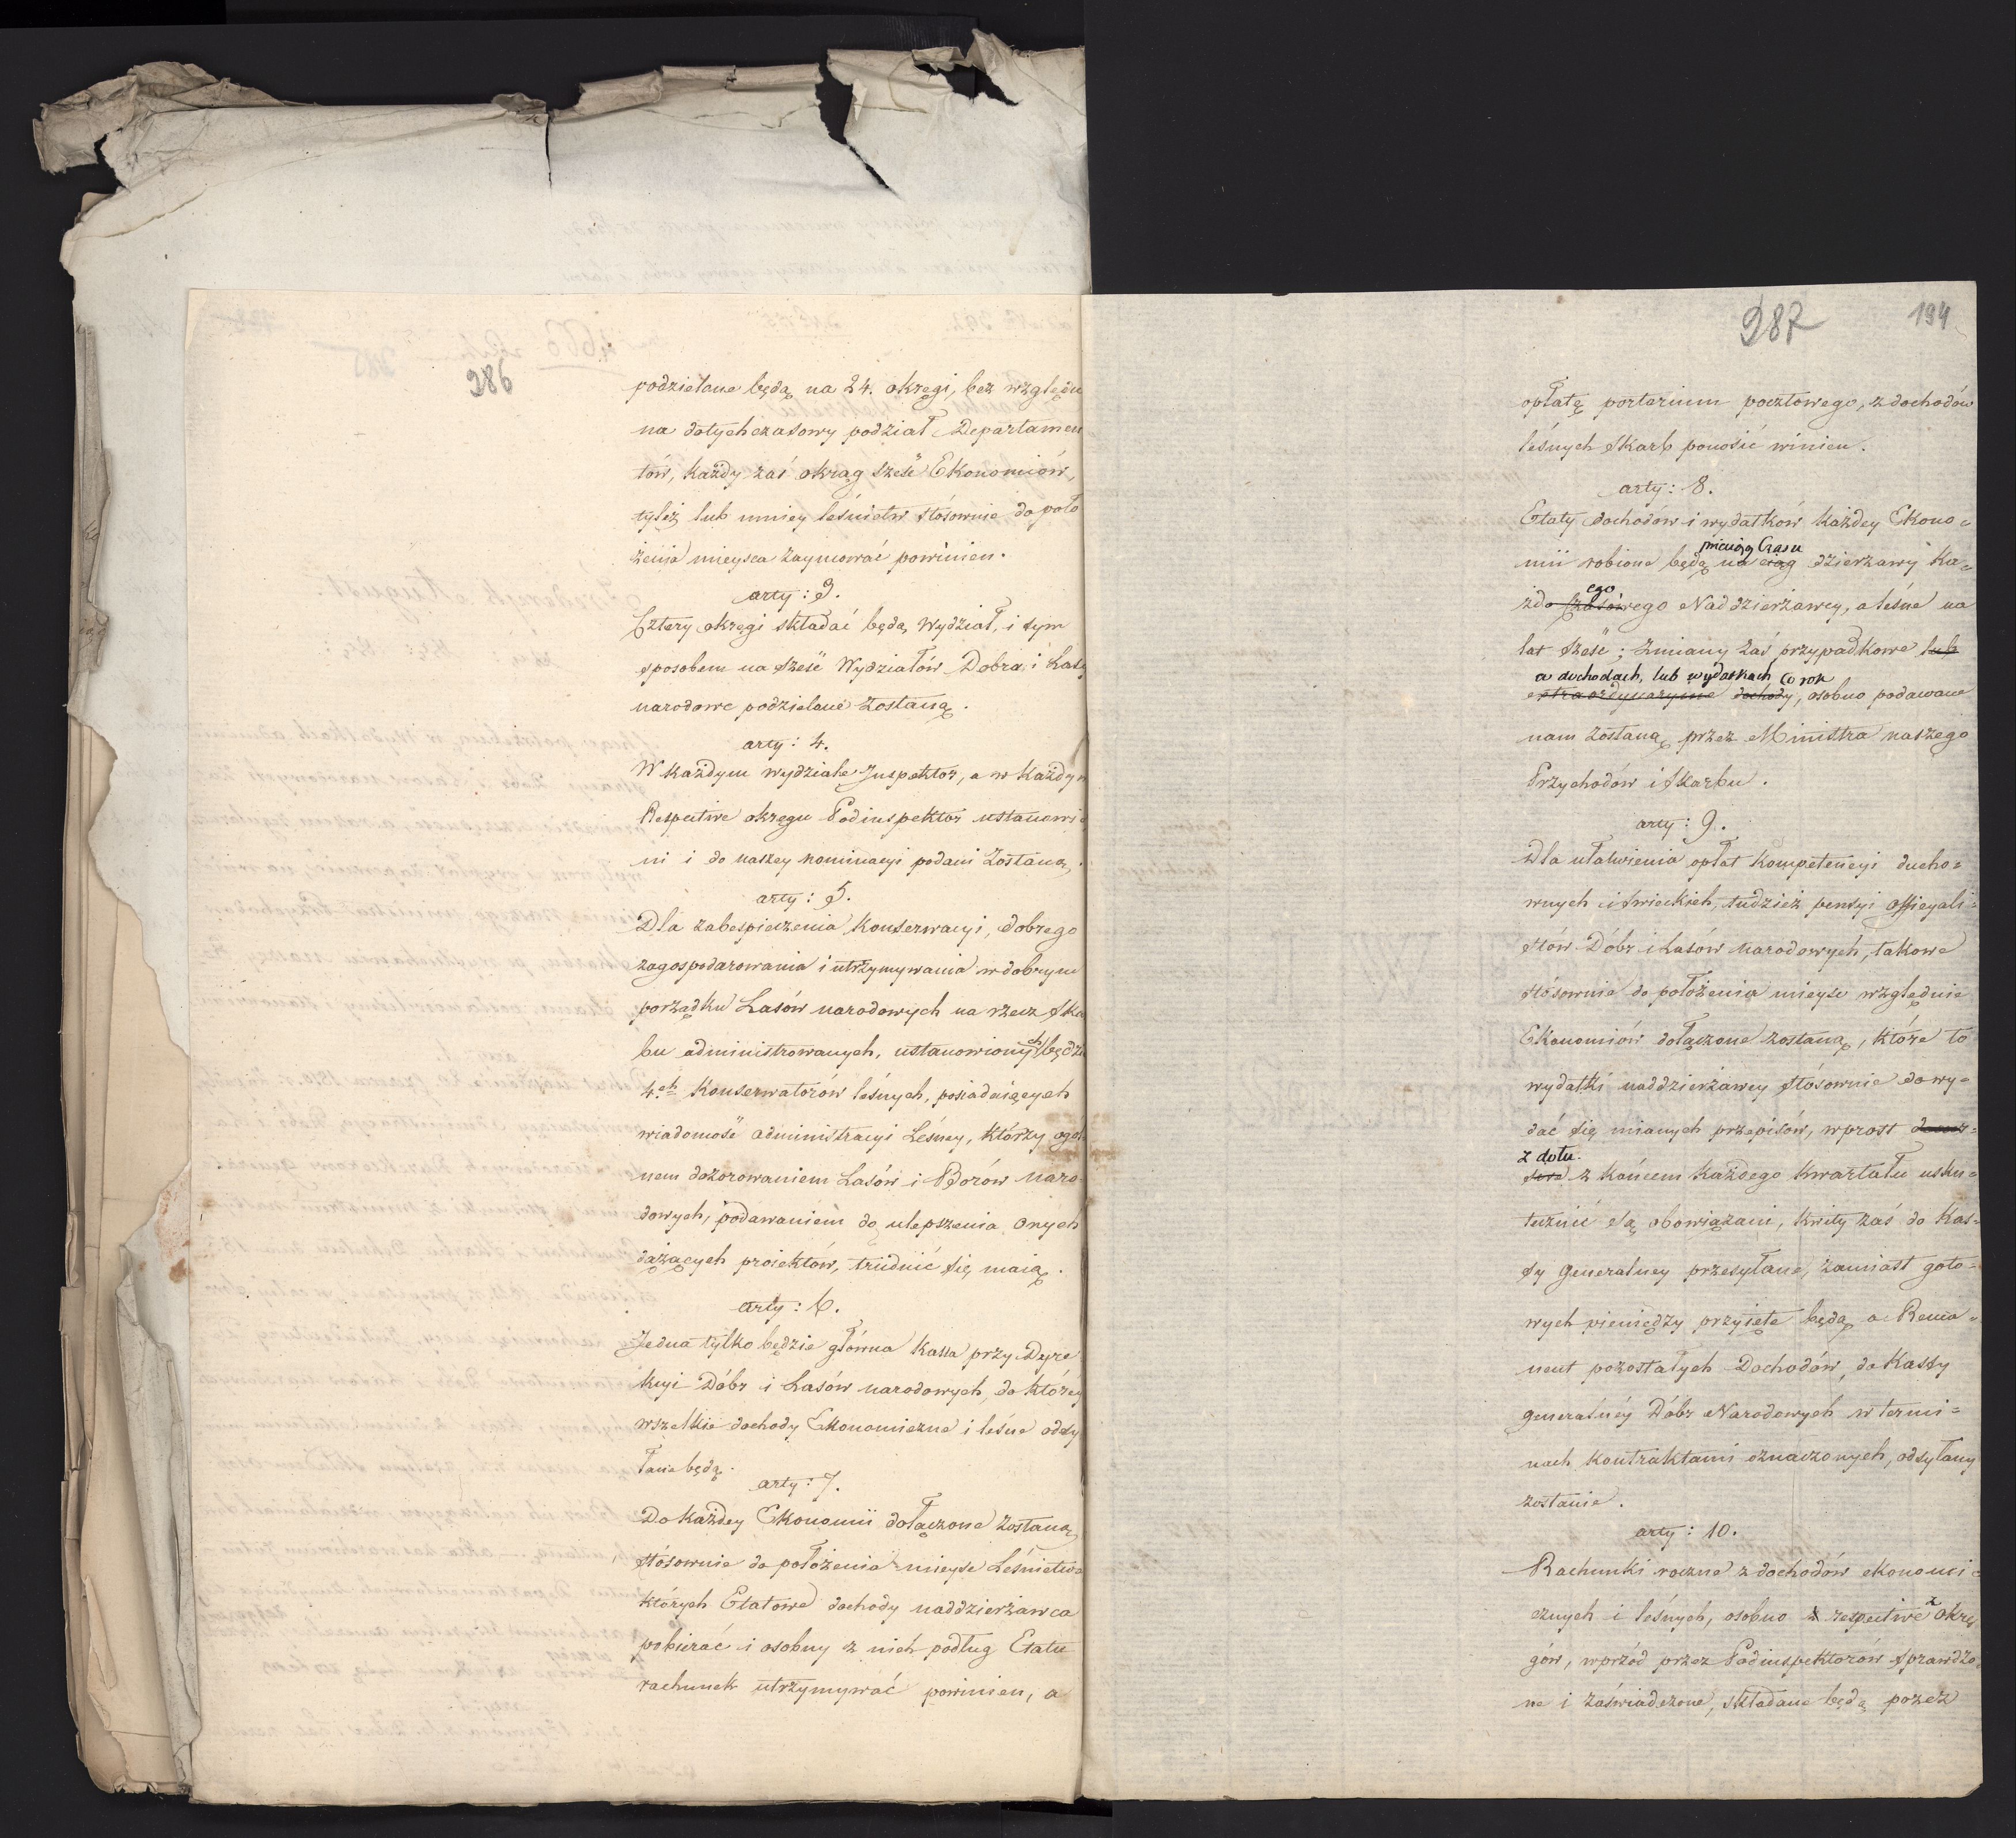 286
podzielane będą na 24. okręgi, bez względu
na dotychczasowy podział Departamen
tów, każdy zaś okrąg sześć Ekonomiów,
tyleż lub mniey leśnictw stósownie do poło
żenia mieysca zaymować powinien.
arty: 3.
Cztery okręgi składać będą Wydział, i tym
sposobem na sześć Wydziałów Dobra i Lasy
narodowe podzielane zostaną.
arty: 4.
W każdym wydziale Inspektor, a w każdym
Respective okręgu Podinspektor ustanowie
ni i do naszey nominacyi podani zostaną.
arty: 5.
Dla zabespieczenia konserwacyi, dobrego
zagospodarowania i utrzymywania w dobrym
porządku Lasów narodowych na rzecz Skar
bu administrowanych, ustanowionych będzie
4ch Konserwatorów leśnych, posiadaiących
wiadomość administracyi Leśney, którzy ogól
nem dozorowaniem Lasów i Borów naro
dowych, podawaniem do ulepszenia onych
dążących proiektów, trudnić się maią.
arty: 6.
Jedna tylko będzie główna Kassa przy Dyre
kcyi Dóbr i Lasów narodowych, do którey
wszelkie dochody Ekonomiczne i leśne odsy
łane będą.
arty: 7.
Do każdey Ekonomii dołączone zostaną
stósownie do położenia mieysc Leśnictwa
których Etatowe dochody naddzierżawca
pobierać i osobny z nich podług Etatu
rachunek utrzymywać powinien, a
287
194
opłatę portorium pocztowego, z dochodów
leśnych Skarb ponosić winien.
arty: 8.
Etaty dochodów i wydatków każdey Ekono=
mii robione będą na przeciąg Czasu ciąg dzierżawy Ka=
żdo czasowego ego Naddzierżawcy, a leśne na
lat sześć; zmiany zaś przypadkowe lub
w dochodach, lub wydatkach co rok
extraordynaryine dochody, osobno podawane
nam zostaną przez Ministra naszego
Przychodów i Skarbu.
arty: 9.
Dla ułatwienia opłat kompetencyi ducho=
wnych i świeckich, tudzież pensyi Officyali=
stów Dóbr i Lasów narodowych, takowe
stósownie do położenia mieysc względnie
Ekonomiów dołączone zostaną, które to
wydatki naddzierżawcy stósownie do wy=
dać się mianych przepisów, wprost
z dołu.
z końcem każdego kwartału usku=
tecznić są obowiązani, kwity zaś do Kas=
sy Generalney przesyłane, zamiast goto=
wych pieniędzy przyięte będą a Rema=
nent pozostałych Dochodów, do Kassy
generalnéy Dóbr Narodowych w termi=
nach kontraktami oznaczonych, odsyłany
zostanie.
arty: 10.
Rachunki roczne z dochodów ekonomi=
cznych i leśnych, osobno z respective z okrę
gów, wprzód przez Podinspektorów sprawdzo
ne i zaświadczone, składane będą przez